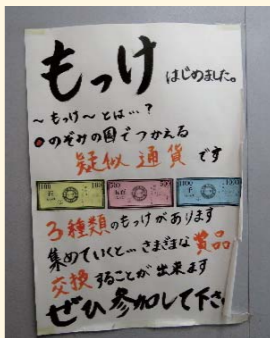 もっけ はじめました。
～もっけ～とは…？
●のぞみの国でつかえる
疑似通貨です
100 100
500 500
1000 1000
3種類のもっけがあります
集めていくと…さまざまな賞品
交換することが出来ます
ぜひ参加して下さ